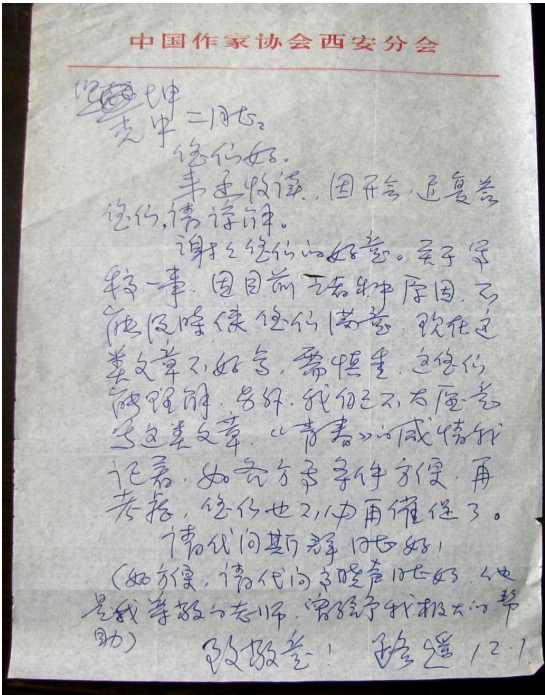 中国作家协会西安分会
坤
光中 二同志:
您们好。
来函收读,因开会,迟复答
您们,请谅解。
谢谢您们的好意。关于写
稿一事,因目前之种种原因,不
能及时使您们满意,现在这
类文章不好写,需慎重,这您们
能理解。另外,我自己不大愿意
写这类文章,《青春》的感情我
记着,如各方面条件方便,再
考虑,您们也不必再催促了。
请代问斯群同志好!
(如方便,请代问高晓声同志好,他
是我尊敬的老师,曾经给予我极大的帮
助)
致敬意! 路遥 12.1